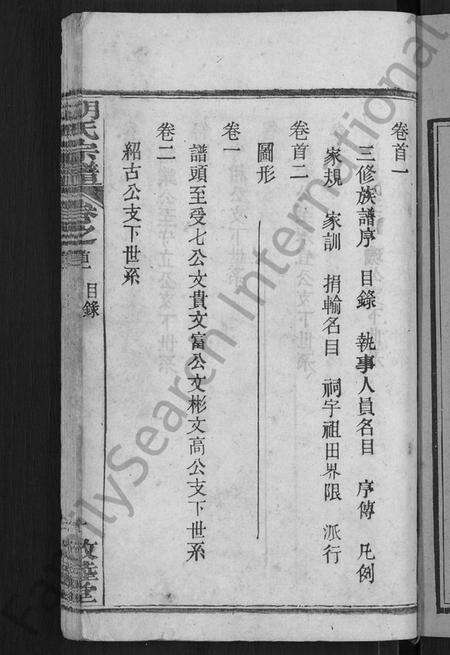 卷首一
三修族譜序 目錄 執事人員名目 序傳 凡例
家規 家訓 捐輸名目 祠宇祖田界限 派行
卷首二
圖形
卷一
譜頭至受七公文貴文富公文彬文高公支下世系
卷二
紹古公支下世系
胡氏宗譜 卷之首 目錄 一
FamilySearch International